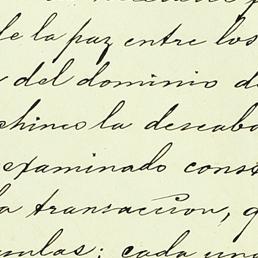 de la paz entre los
del dominio de
chinos la deseaba
examinado cons
la transacción, q
cada una